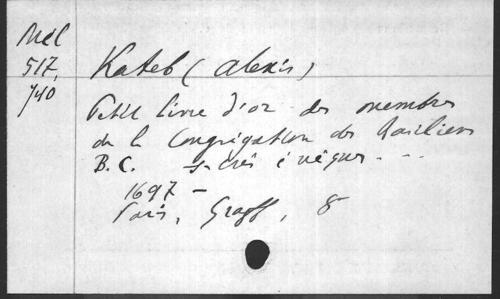 Mel
517,
740
Kateb (Alexis)
Petit livre d'or des membres
de la Congrégation des Basiliens
B.C. sacrés évêques. ...
1697 -
Paris, Graff, 8